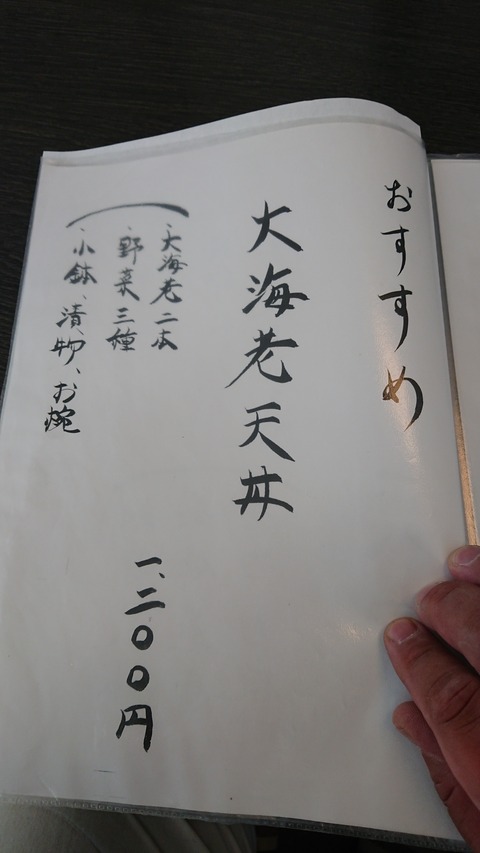 おすすめ
大海老天丼
、大海老二本
、野菜三種
、小鉢、漬物、お椀
一、二〇〇円